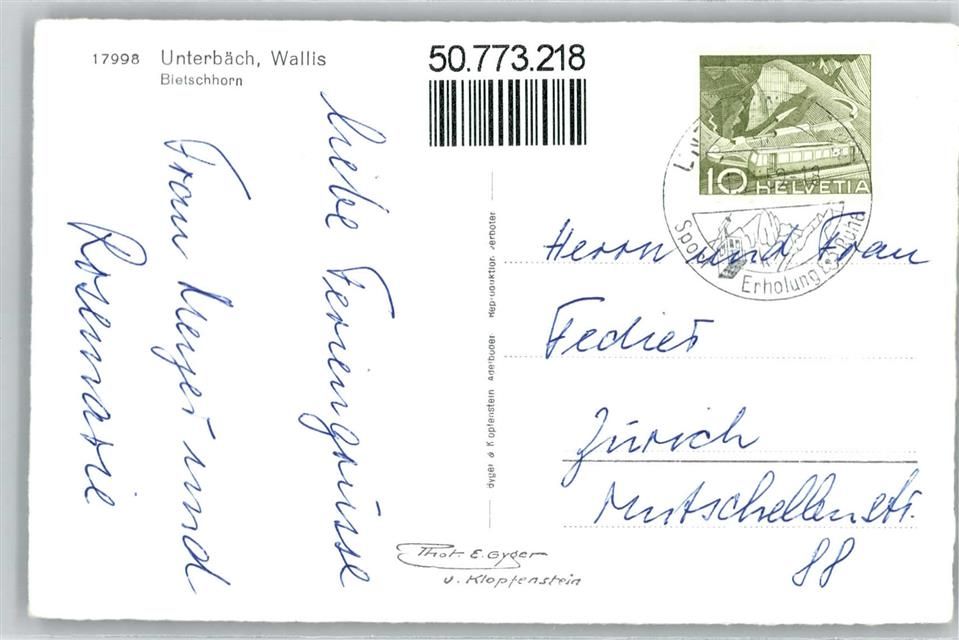 17998 Unterbäch, Wallis
Bietschhorn
50.773.218
10 HELVETIA
52-18
Sport
Erholung
Liebe Feriengrüsse
Frau Meyer und
Rosmarie
Gyger & Klopfenstein Adelboden Reproduktion verboten
Herrn und Frau
Zürich
Mutschellenstr.
88
Phot. E. Gyger
u. Klopfenstein